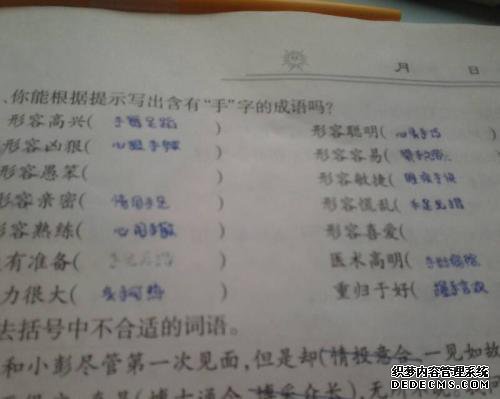 月 日
、你能根据提示写出含有“手”字的成语吗?
形容高兴( 手舞足蹈 ) 形容聪明( 心灵手巧
形容凶狠( 心狠手辣 ) 形容容易(
形容愚笨( ) 形容敏捷( 眼疾手快
形容亲密( 情同手足 ) 形容慌乱( 手足无措
容熟练( ) 形容喜爱(
有准备( ) 医术高明(
力很大( 炙手可热 ) 重归于好( 握手言欢
去括号中不合适的词语。
和小彭尽管第一次见面,但是却(情投意合 一见如故
博古通今 博采众长),无所不
织梦内容管理系统
DEDECMS.COM